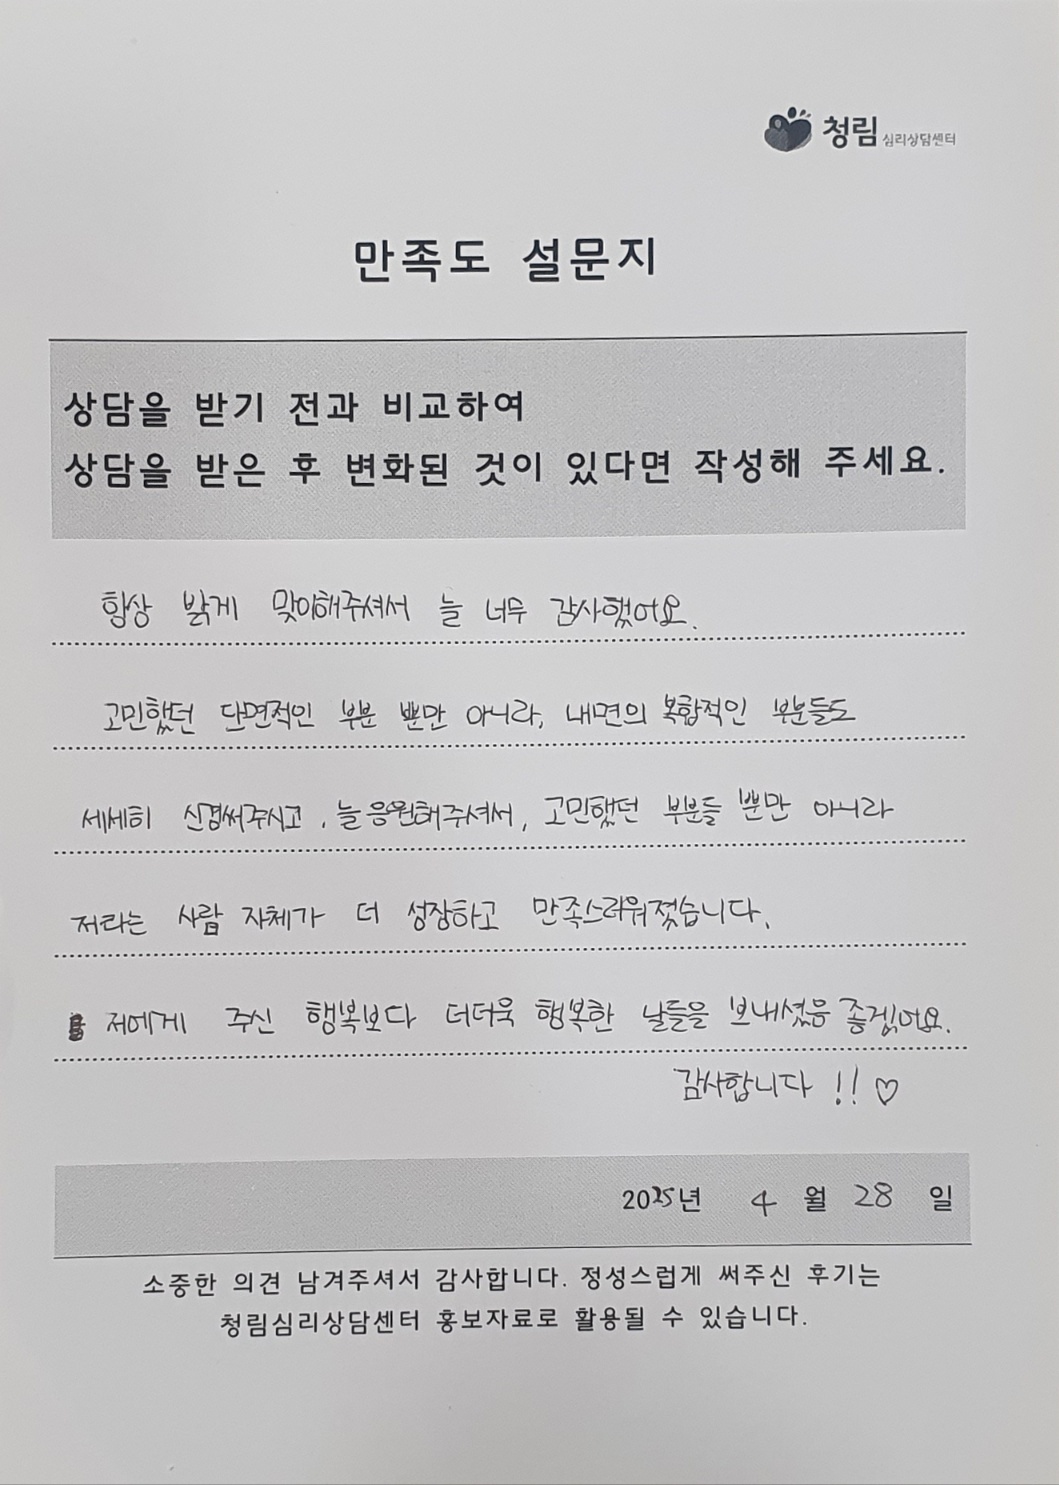 청림 심리상담센터
만족도 설문지
상담을 받기 전과 비교하여
상담을 받은 후 변화된 것이 있다면 작성해 주세요.
항상 밝게 맞이해주셔서 늘 너무 감사했어요.
고민했던 단면적인 부분 뿐만 아니라, 내면의 복합적인 부분들도
세세히 신경써주시고, 늘 응원해주셔서, 고민했던 부분들 뿐만 아니라
저라는 사람 자체가 더 성장하고 만족스러워졌습니다.
저에게 주신 행복보다 더더욱 행복한 날들을 보내셨음 좋겠어요.
감사합니다 !! ♡
2025년 4 월 28 일
소중한 의견 남겨주셔서 감사합니다. 정성스럽게 써주신 후기는
청림심리상담센터 홍보자료로 활용될 수 있습니다.